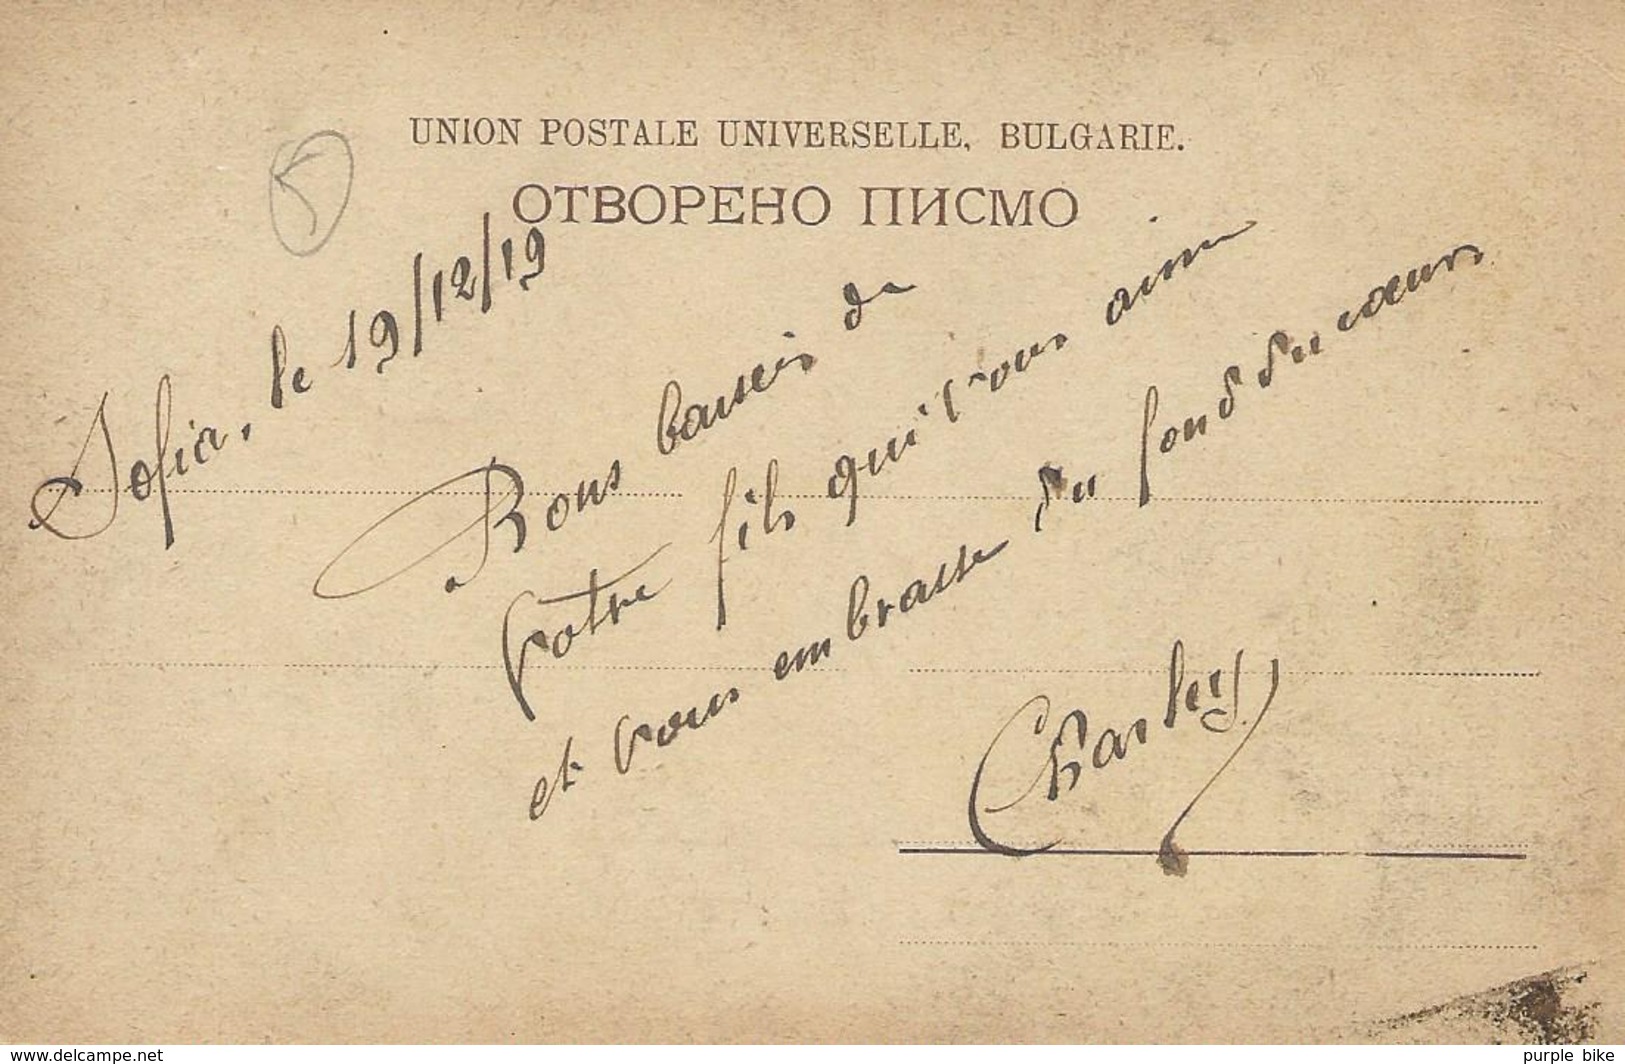 UNION POSTALE UNIVERSELLE, BULGARIE.
ОТВОРЕНО ПИСМО
Sofia, le 19/12/19
Bons baisers de
votre fils qui vous aime
et vous embrasse du fond du cœur
Charley
www.delcampe.net
purple bike